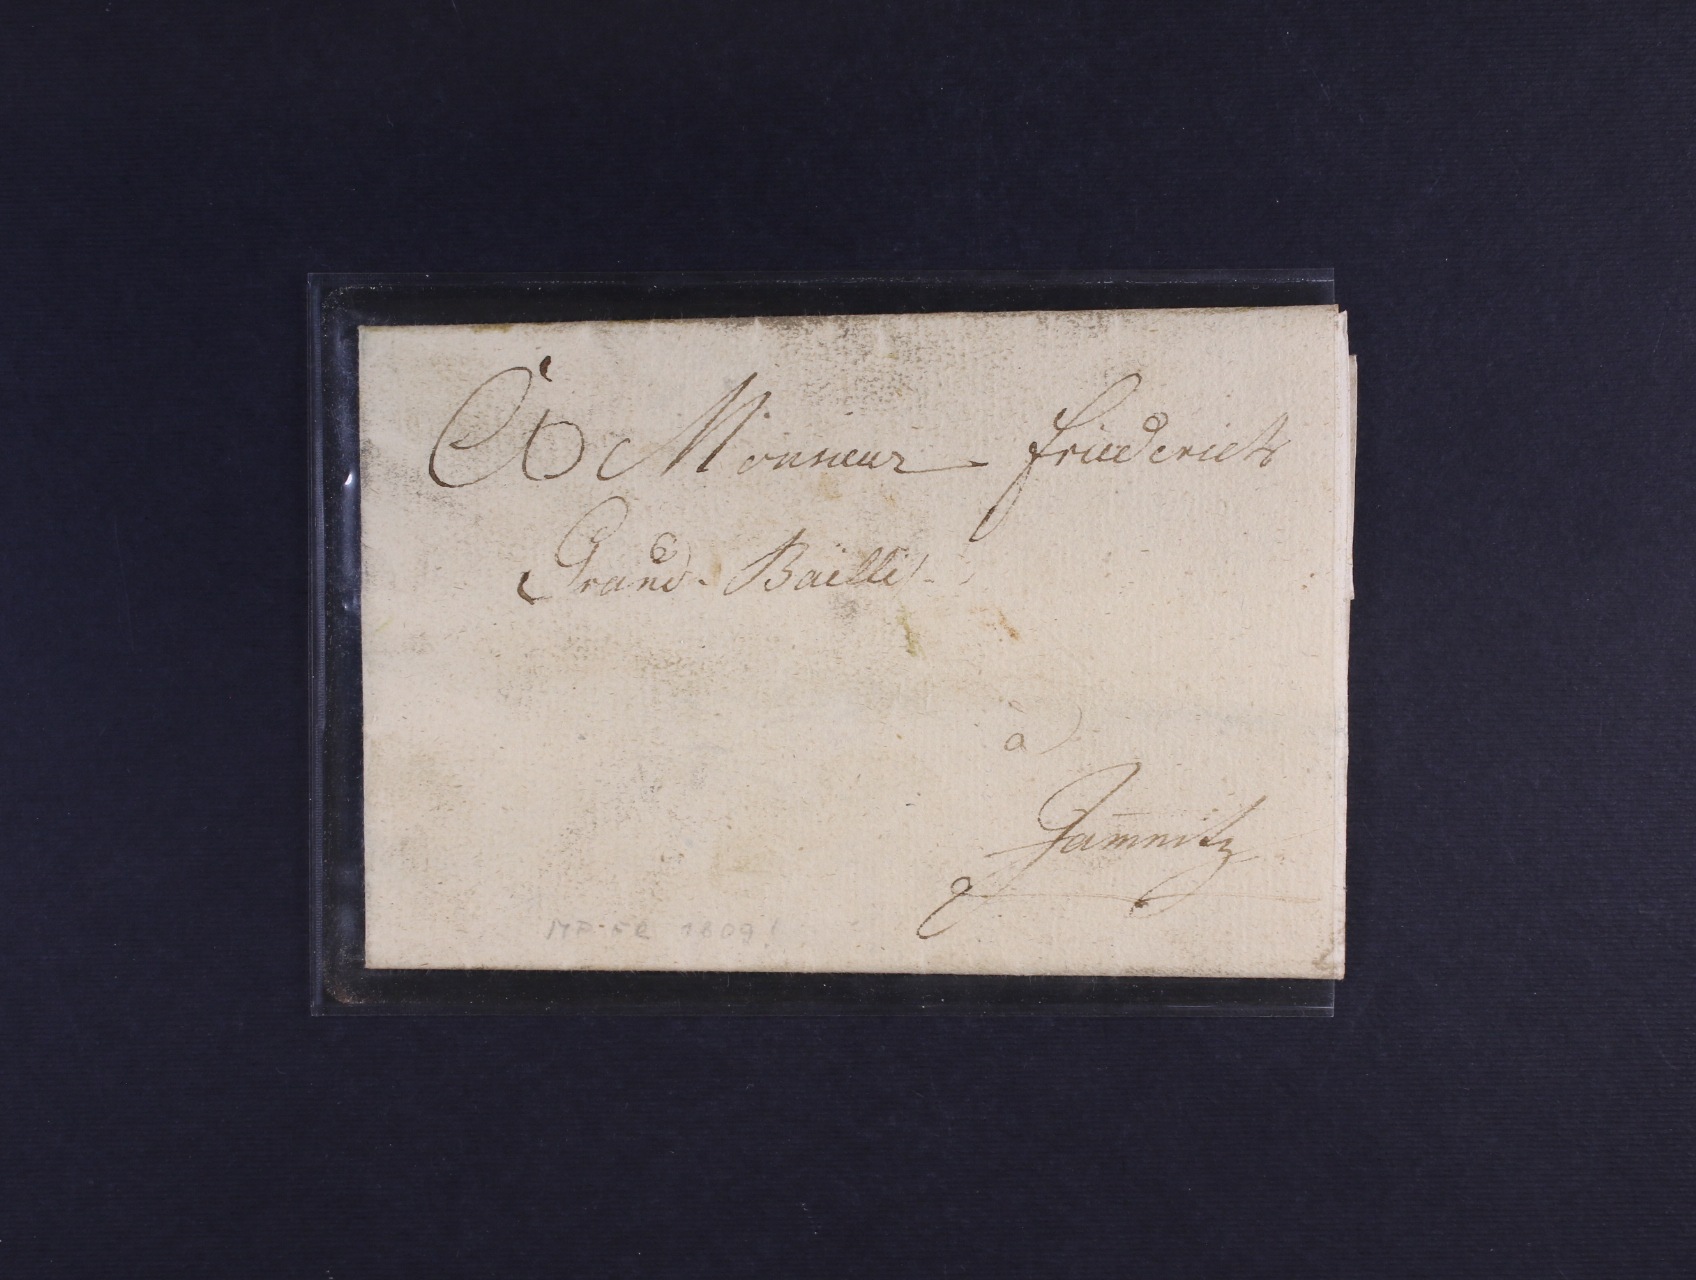 A Monsieur Friederich
Grand-Bailli
à
Jam̄nitz
MP-FR 1809!